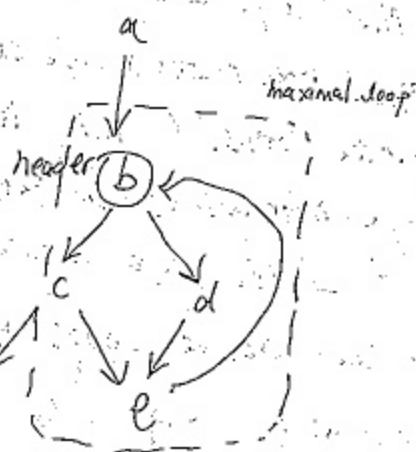 a
maximal loop
header
b
c
d
e